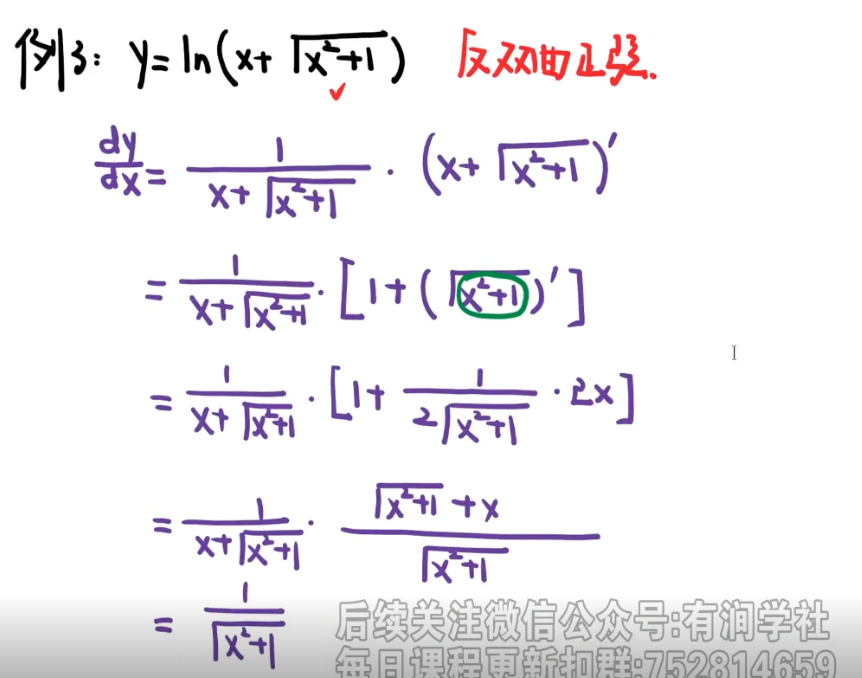 例3: y = ln(x + √(x²+1)) 反双曲正弦.
dy/dx = 1/(x + √(x²+1)) · (x + √(x²+1))′
= 1/(x + √(x²+1)) · [1 + (√(x²+1))′]
= 1/(x + √(x²+1)) · [1 + 1/(2√(x²+1)) · 2x]
= 1/(x + √(x²+1)) · (√(x²+1) + x)/√(x²+1)
= 1/√(x²+1)
后续关注微信公众号:有润学社
每日课程更新扣群:752814659